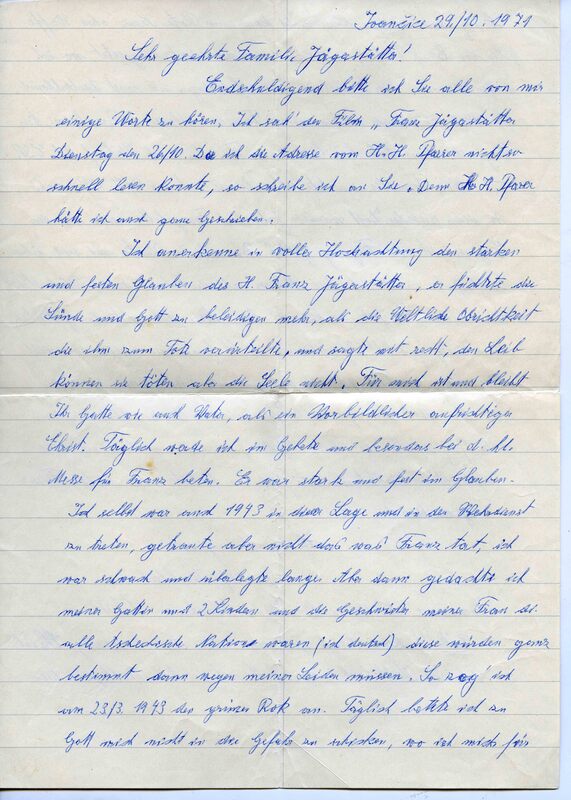 Ivančice 29/10. 1971
Sehr geehrte Familie Jägastätta!
Endschuldigend bitte ich Sie alle von mir
einige Worte zu hören. Ich sah' den Film „Franz Jägastätta
Dienstag den 26/10. Da ich die Adresse vom H.H. Pfarrer nicht so
schnell lesen konnte, so schreibe ich an Sie. Dem H.H. Pfarer
hätte ich auch gerne Geschrieben.
Ich anerkenne in voller Hochachtung den starken
und festen Glauben des H. Franz Jägerstätta, er fürchtete die
Sünde und Gott zu beleidigen mehr, als die Weltliche Obrichtkeit
die ihm zum Tote verurteilte, und sagte mit rest, den Leib
können sie töten aber die Seele nicht. Für mich ist und bleibt
Ihr Gatte wie auch Vater, als ein Vorbildlicher aufrichtiger
Christ. Täglich werde ich im Gebete und besonders bei d. hl.
Messe für Franz beten. Er war stark und fest im Glauben.
Ich selbst war auch 1943 in dieser Lage und in der Wehrdienst
zu treten, getraute aber nicht das was Franz tat, ich
war schwach und überlegte lange. Aber dann gedachte ich
meiner Gattin mit 2 Kinden und die Geschwister meiner Frau die
alle Tschechische Nation waren (ich deutsch) diese würden ganz
bestimmt dann wegen meiner Leiden müssen. So zog' ich
am 23/3. 1943 den grünen Rok an. Täglich betete ich zu
Gott mich nicht in die Gefahr zu schicken, wo ich mich für